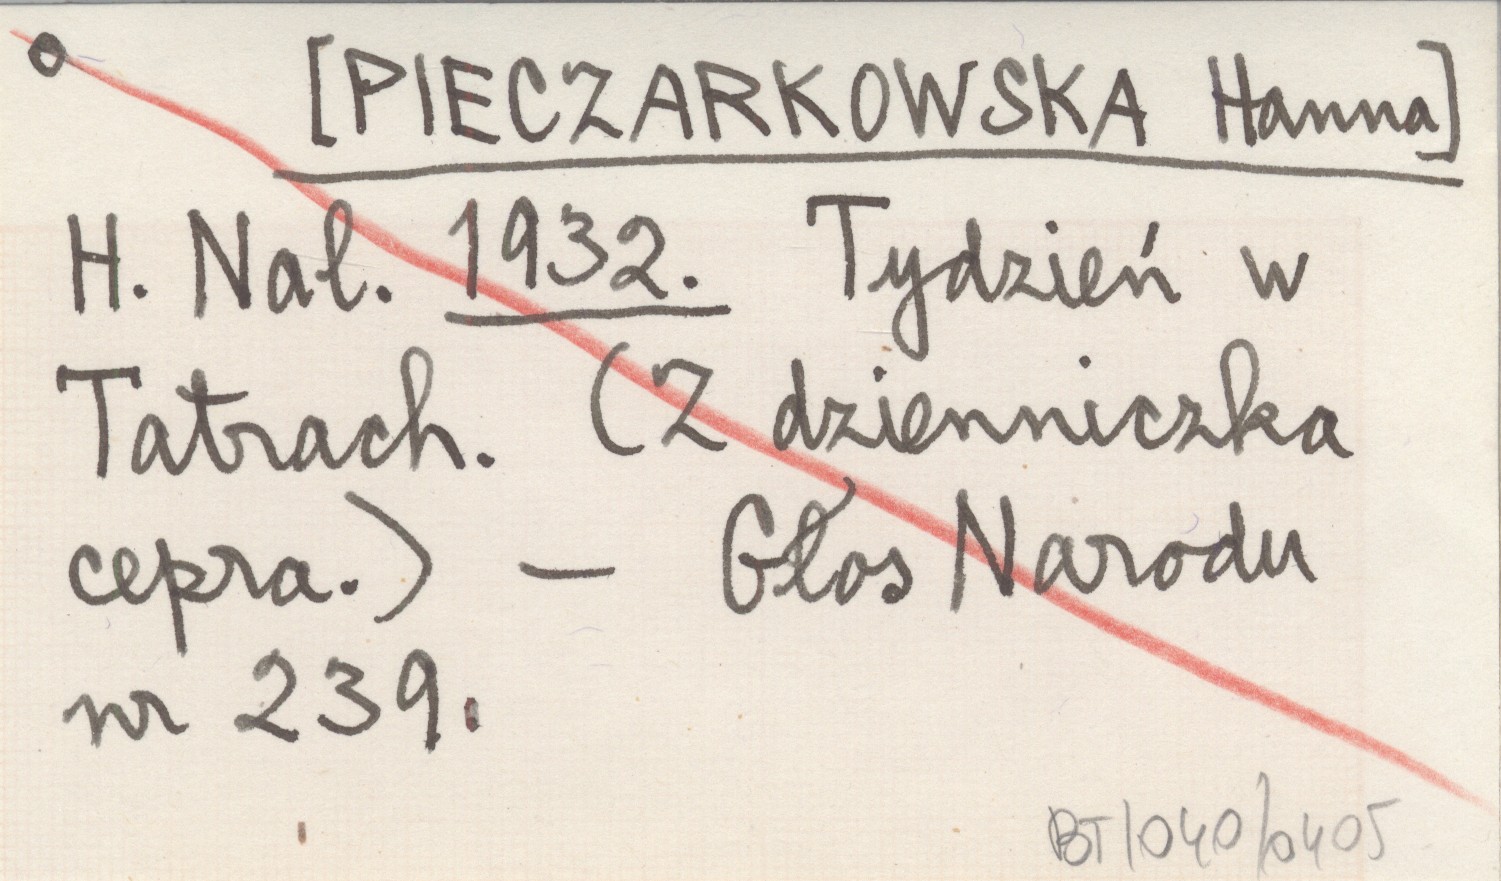 [PIECZARKOWSKA Hanna]
H. Nał. 1932. Tydzień w
Tatrach. (Z dzienniczka
cepra.) — Głos Narodu
nr 239.
BT/040/0405